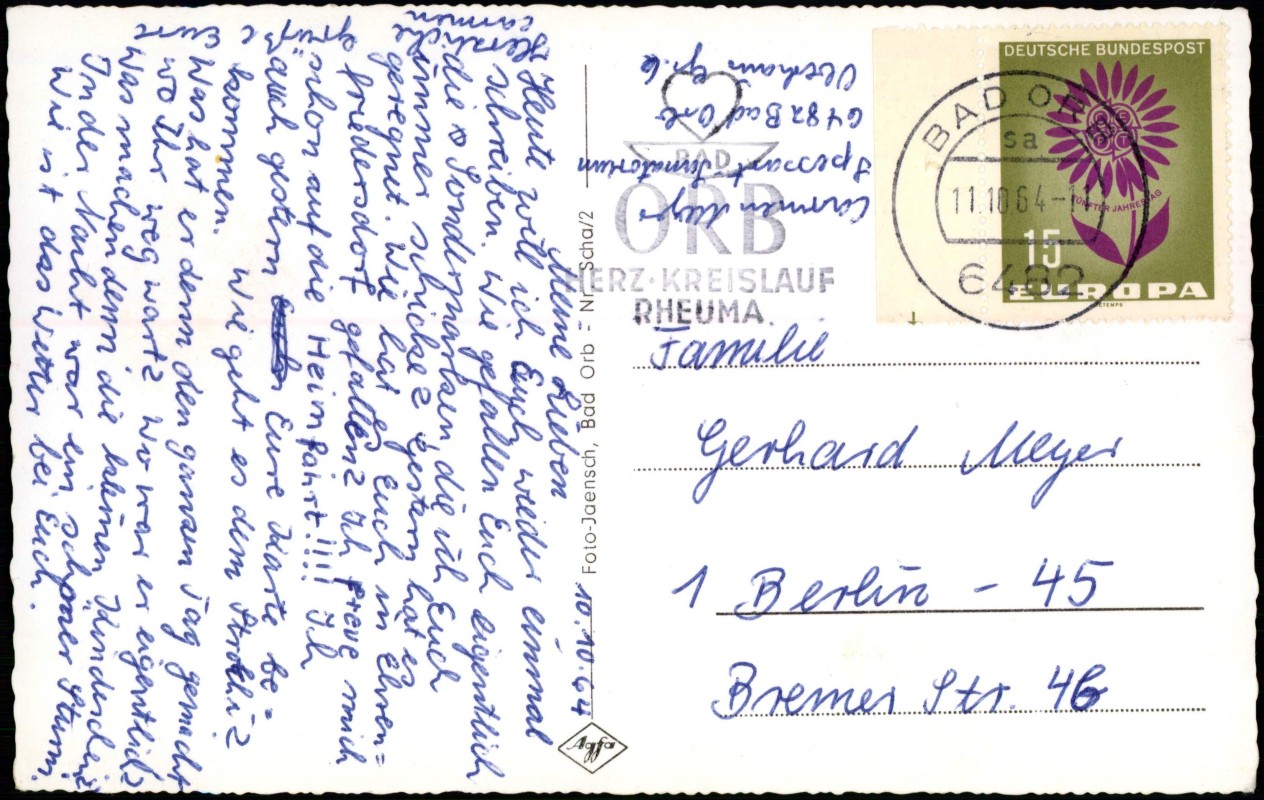 10.10.64
Meine Lieben
Heute will ich Euch wieder einmal
schreiben. Wie gefallen Euch eigentlich
die Sondermarken, die ich Euch
immer schicke? Gestern hat es
geregnet. Wie hat es Euch in Ehren=
friedersdorf gefallen? Ich freue mich
schon auf die Heimfahrt!!!! Ich
auch gestern Eure Karte be=
kommen. Wie geht es dem
Was hat er denn den ganzen Tag gemacht
wo Ihr weg wart? Wo war er eigentlich?
Was machen denn die kleinen
In der Nacht war ein schöner Sturm.
Wie ist das Wetter bei Euch.
Herzliche
Grüße
Eure
Carmen
Foto-Jaensch, Bad Orb - Nr. Scha/2
Agfa
Carmen Meyer
Spessart Sanatorium
6482 Bad Orb
Gr. 6
BAD
ORB
HERZ·KREISLAUF
RHEUMA
BAD ORB
sa
11.10.64-11
6482
DEUTSCHE BUNDESPOST
CEPT
FÜNFTER JAHRESTAG
15
EUROPA
Familie
Gerhard Meyer
1 Berlin - 45
Bremer Str. 46